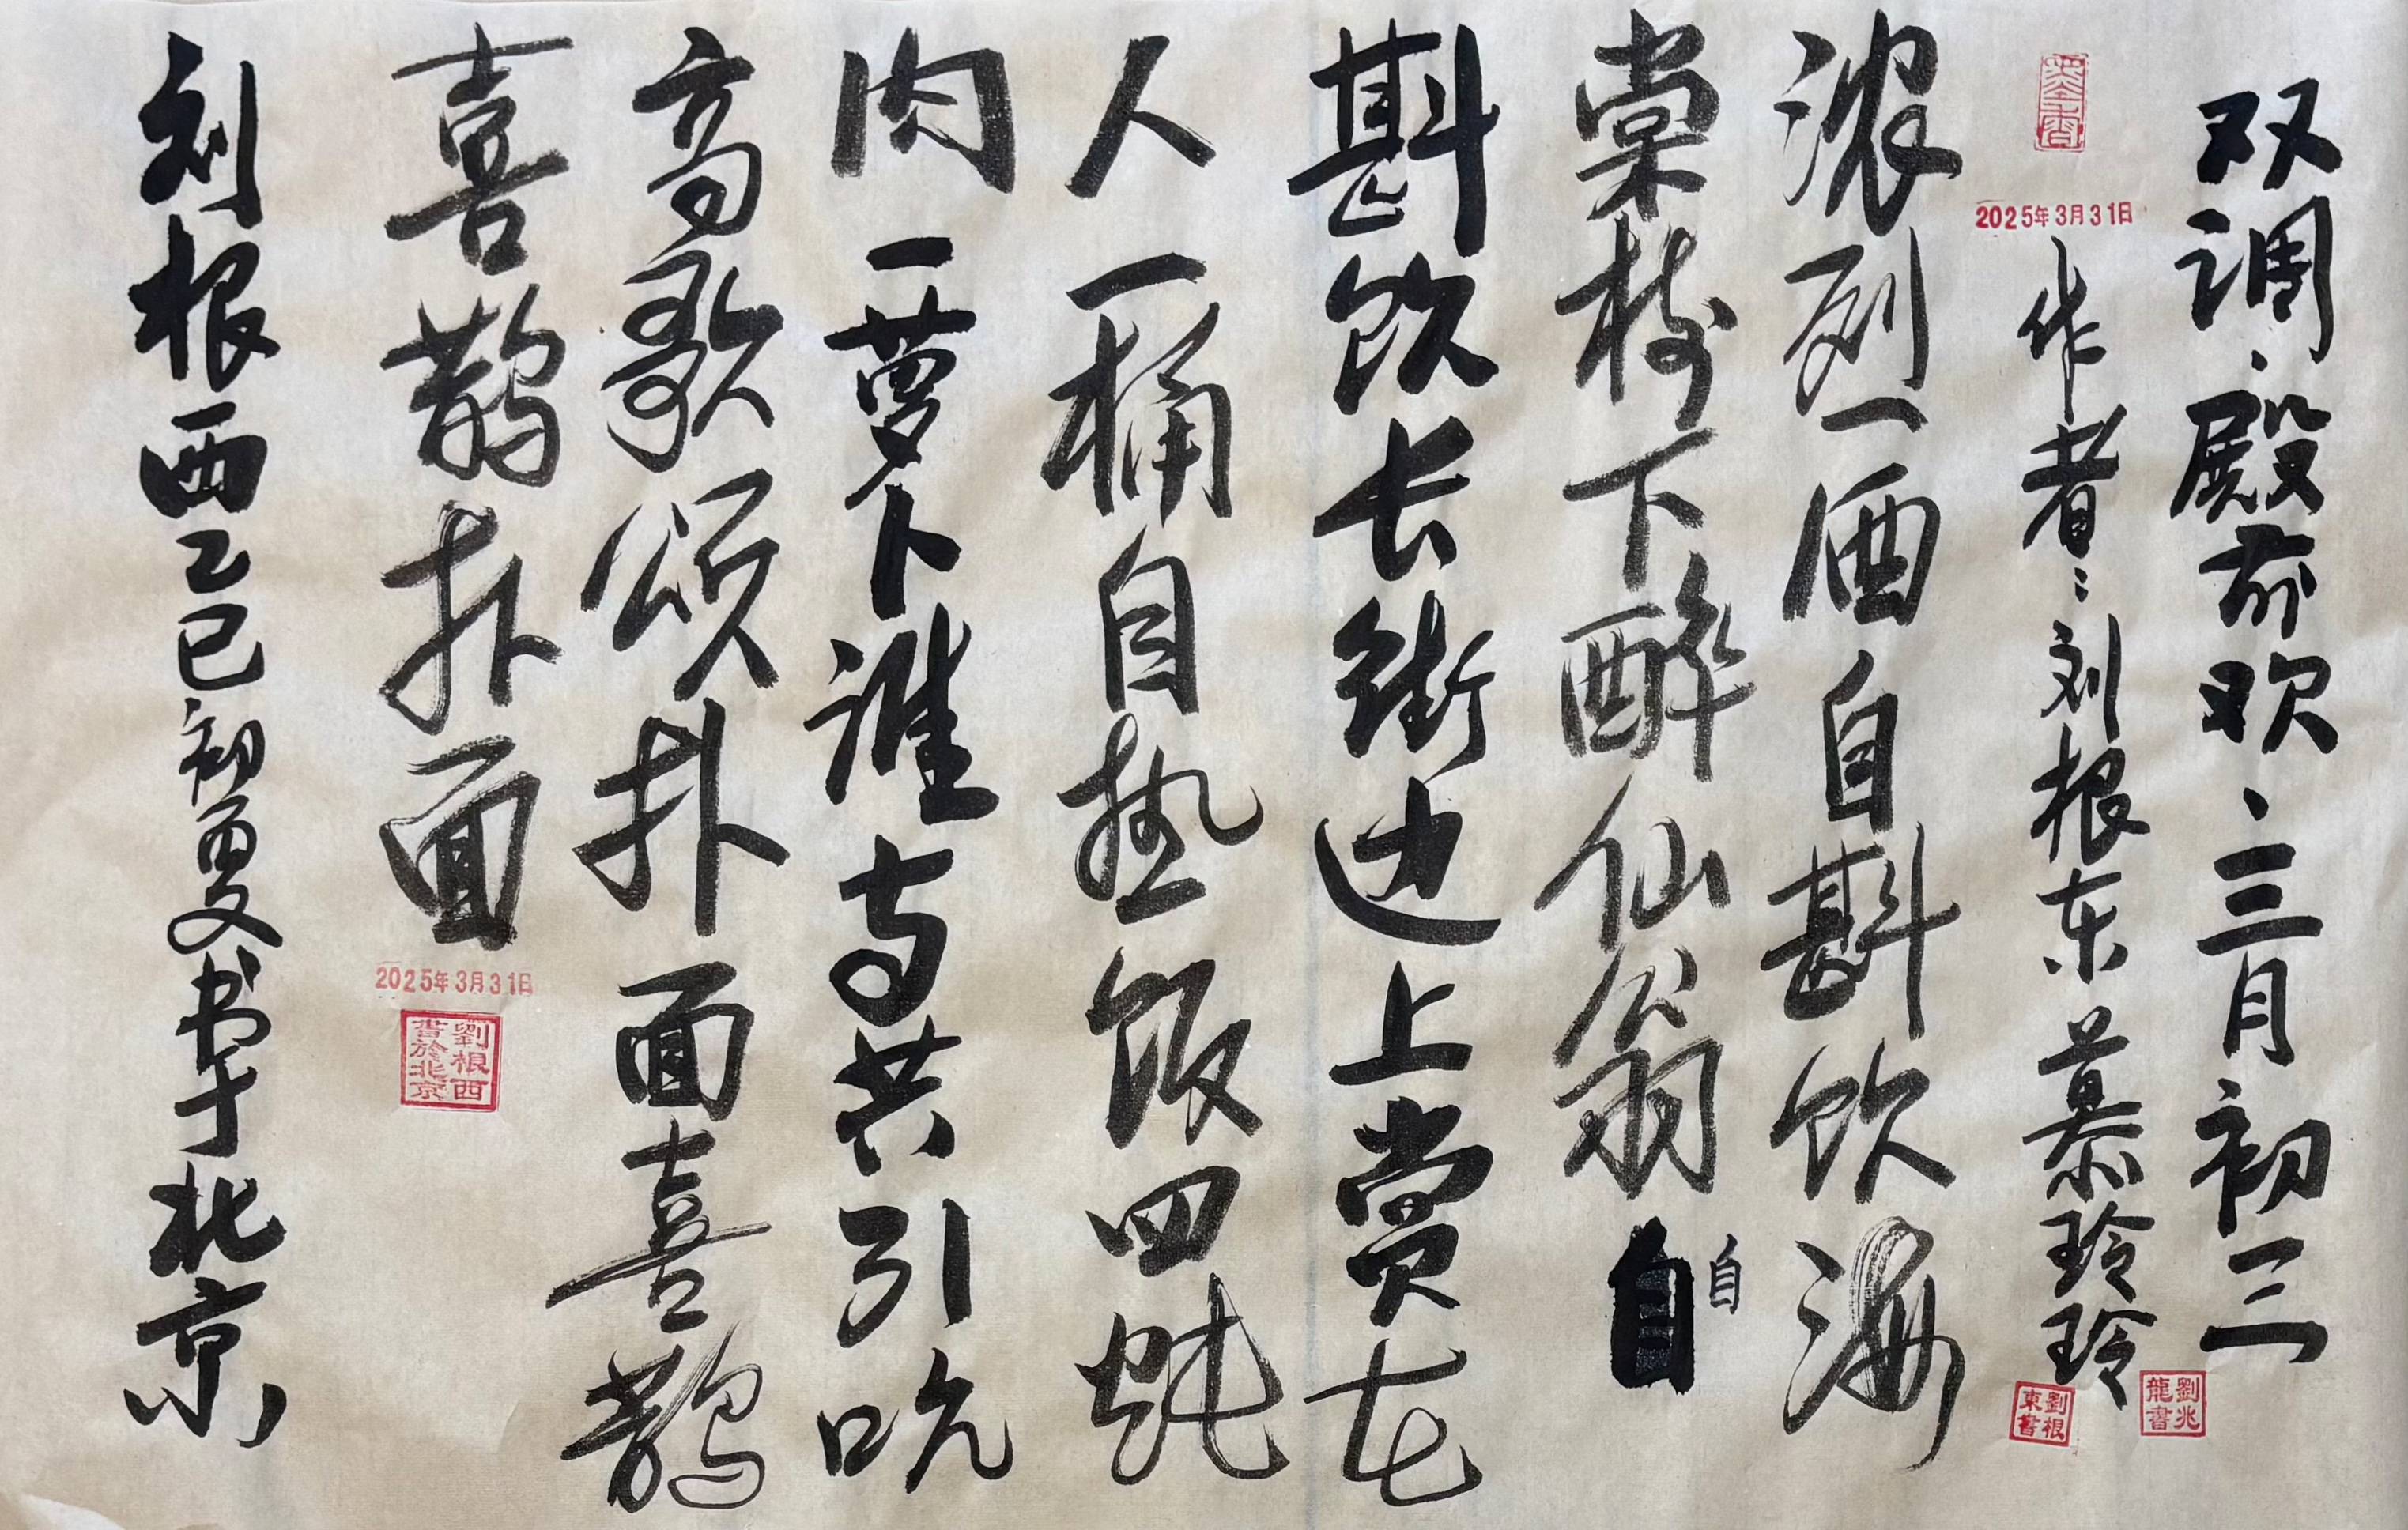 双调·殿前欢·三月初三
2025年3月31日
作者：刘根东慕玲玲
劉兆龍書
劉根東書
浓烈一酒自斟饮海
棠树下醉仙翁自自
斟饮长街边上赏花
人一桶自热饭四炖
肉一萝卜谁与共引吭
高歌颂扑面喜鹊
喜鹊扑面
2025年3月31日
劉根西書於北京
刘根西乙巳初四又书于北京